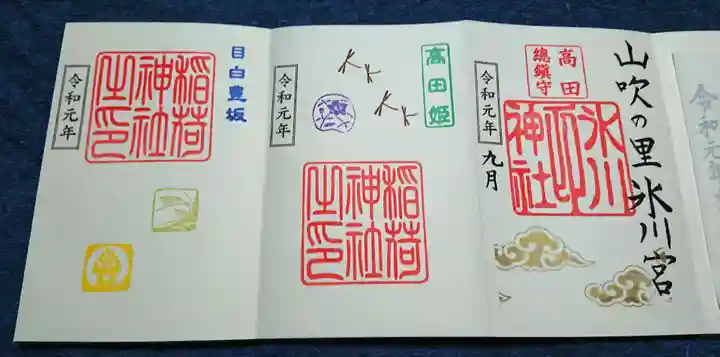 山吹の里氷川宮
高田
總鎮守
氷川
神社
令和元年
九月
高田姫
稲荷
神社
之印
令和元年
目白豊坂
稲荷
神社
之印
令和元年
令和元年